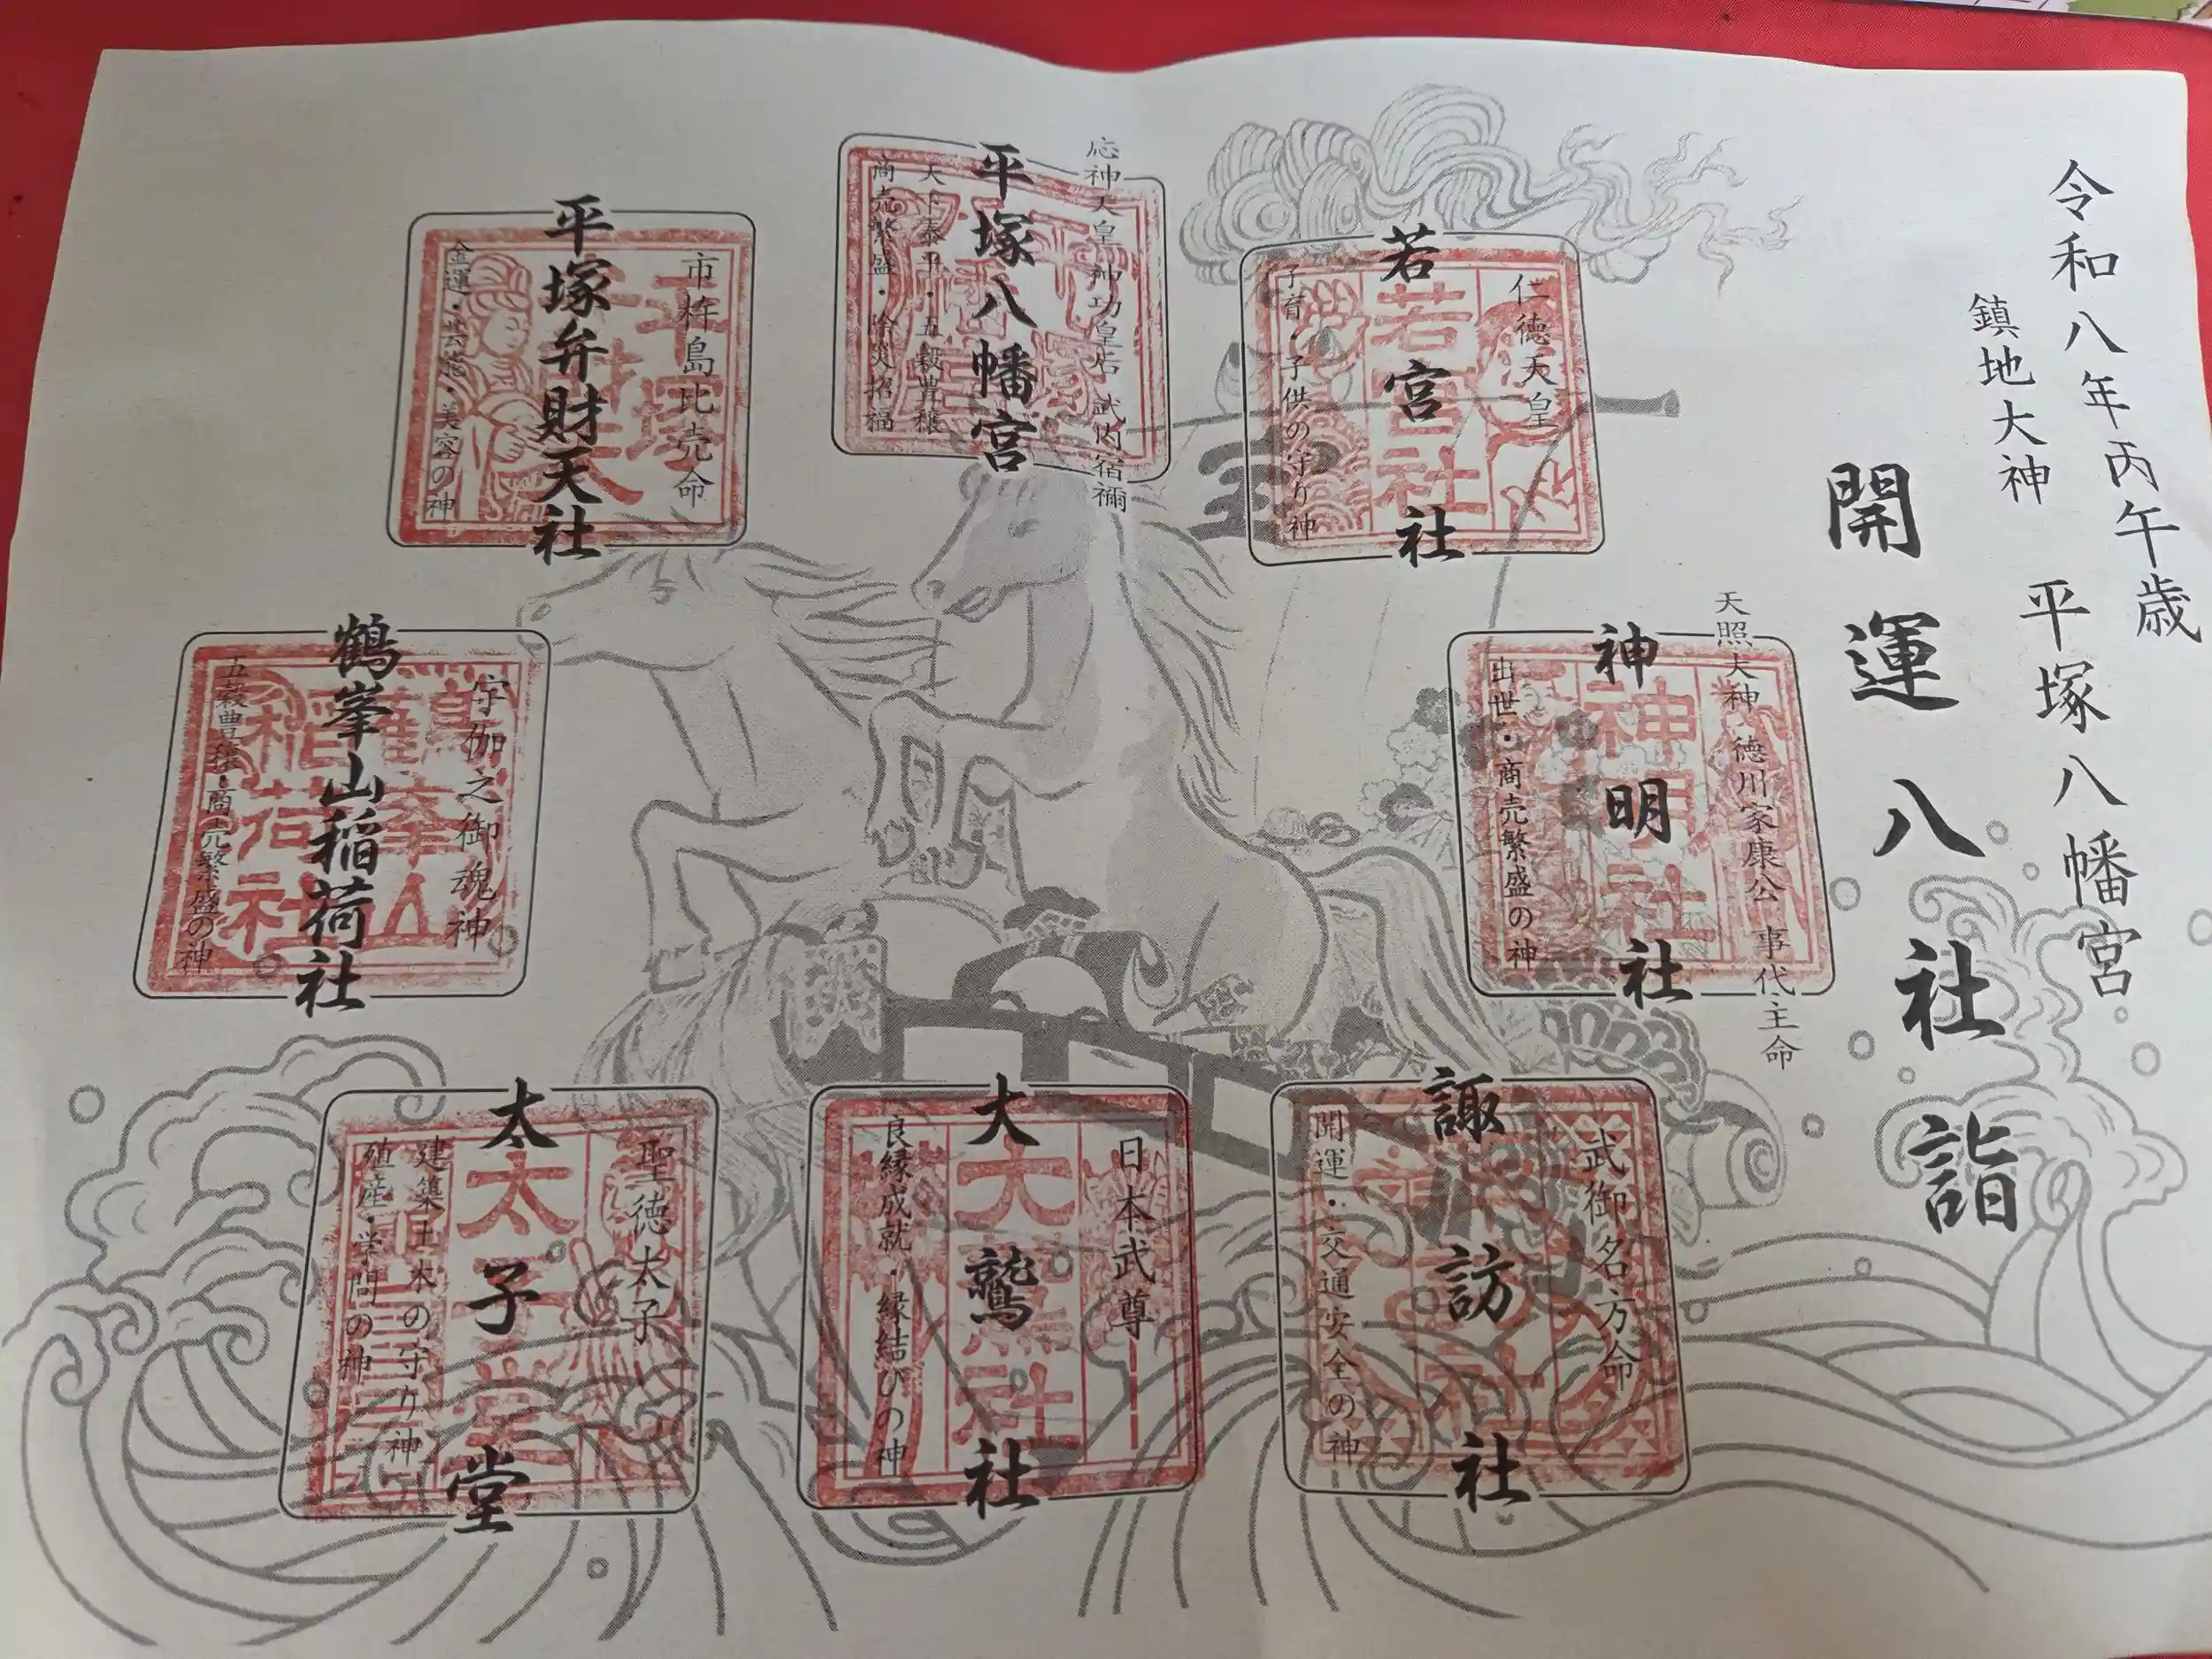 令和八年丙午歳
鎮地大神　平塚八幡宮
開運八社詣
応神天皇 神功皇后 武内宿禰
平塚八幡宮
天下泰平・五穀豊穣
商売繁盛・除災招福
仁徳天皇
若宮社
子育・子供の守り神
若宮社
天照大神 徳川家康公 事代主命
神明社
出世・商売繁盛の神
神明社
武御名方命
諏訪社
開運・交通安全の神
日本武尊
大鷲社
良縁成就・縁結びの神
聖徳太子
太子堂
建築土木の守り神
殖産・学問の神
太子堂
宇伽之御魂神
鶴峯山稲荷社
五穀豊穣・商売繁盛の神
市杵島比売命
平塚弁財天社
金運・芸能・美容の神